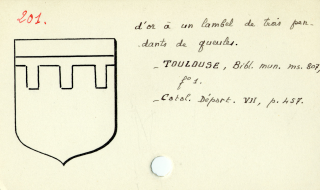 201.
d'or à un lambel de trois pen-
dants de gueules.
- TOULOUSE, Bibl. mun. ms. 807,
f° 1.
- Catal. Départ. VII, p. 457.